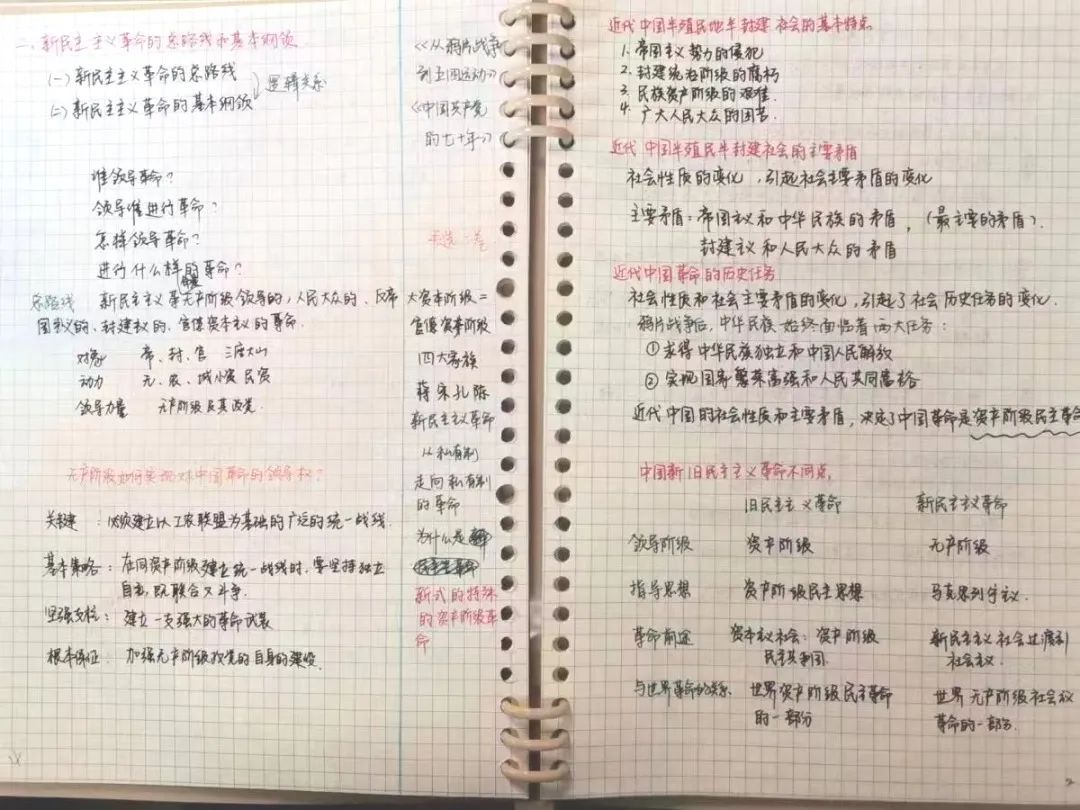 二、新民主主义革命的总路线和基本纲领
(一)新民主主义革命的总路线
(二)新民主主义革命的基本纲领
逻辑关系
谁领导革命?
领导谁进行革命?
怎样领导革命?
进行什么样的革命?
总路线 新民主主义革无产阶级领导的,人民大众的、反帝
国主义的、封建主义的、官僚资本主义的革命.
对象 帝、封、官 三座大山
动力 无、农、城小资 民资
领导力量 无产阶级及其政党.
无产阶级如何实现对中国革命的领导权?
关键 : 必须建立以工农联盟为基础的广泛的统一战线.
基本策略: 在同资产阶级建立统一战线时,要坚持独立
自主,既联合又斗争.
坚强支柱: 建立一支强大的革命武装
根本保证: 加强无产阶级政党的自身的建设.
《从鸦片战争
到五四运动》
《中国共产党
的七十年》
大资本阶级=
官僚资产阶级
四大家族
蒋宋孔陈
新民主主义革命
从私有制
走向私有制
的革命
为什么是
新式的特殊
的资产阶级革
命
近代中国半殖民地半封建社会的基本特点
1. 帝国主义势力的侵犯
2. 封建统治阶级的腐朽
3. 民族资产阶级的艰难.
4. 广大人民大众的困苦.
近代中国半殖民半封建社会的主要矛盾
社会性质的变化,引起社会主要矛盾的变化
主要矛盾:帝国主义和中华民族的矛盾,(最主要的矛盾).
封建主义和人民大众的矛盾
近代中国革命的历史任务
社会性质和社会主要矛盾的变化,引起了社会历史任务的变化.
鸦片战争后,中华民族始终面临着两大任务:
①求得中华民族独立和中国人民解放
②实现国家繁荣富强和人民共同富裕
近代中国的社会性质和主要矛盾,决定了中国革命是资产阶级民主革命
中国新旧民主主义革命不同点,
旧民主主义革命 新民主主义革命
领导阶级 资产阶级 无产阶级
指导思想 资产阶级民主思想 马克思列宁主义.
革命前途 资本主义社会:资产阶级 新民主主义社会过渡到
民主共和国. 社会主义.
与世界革命的关系 世界资产阶级民主革命 世界无产阶级社会主义
的一部分 革命的一部分.
2